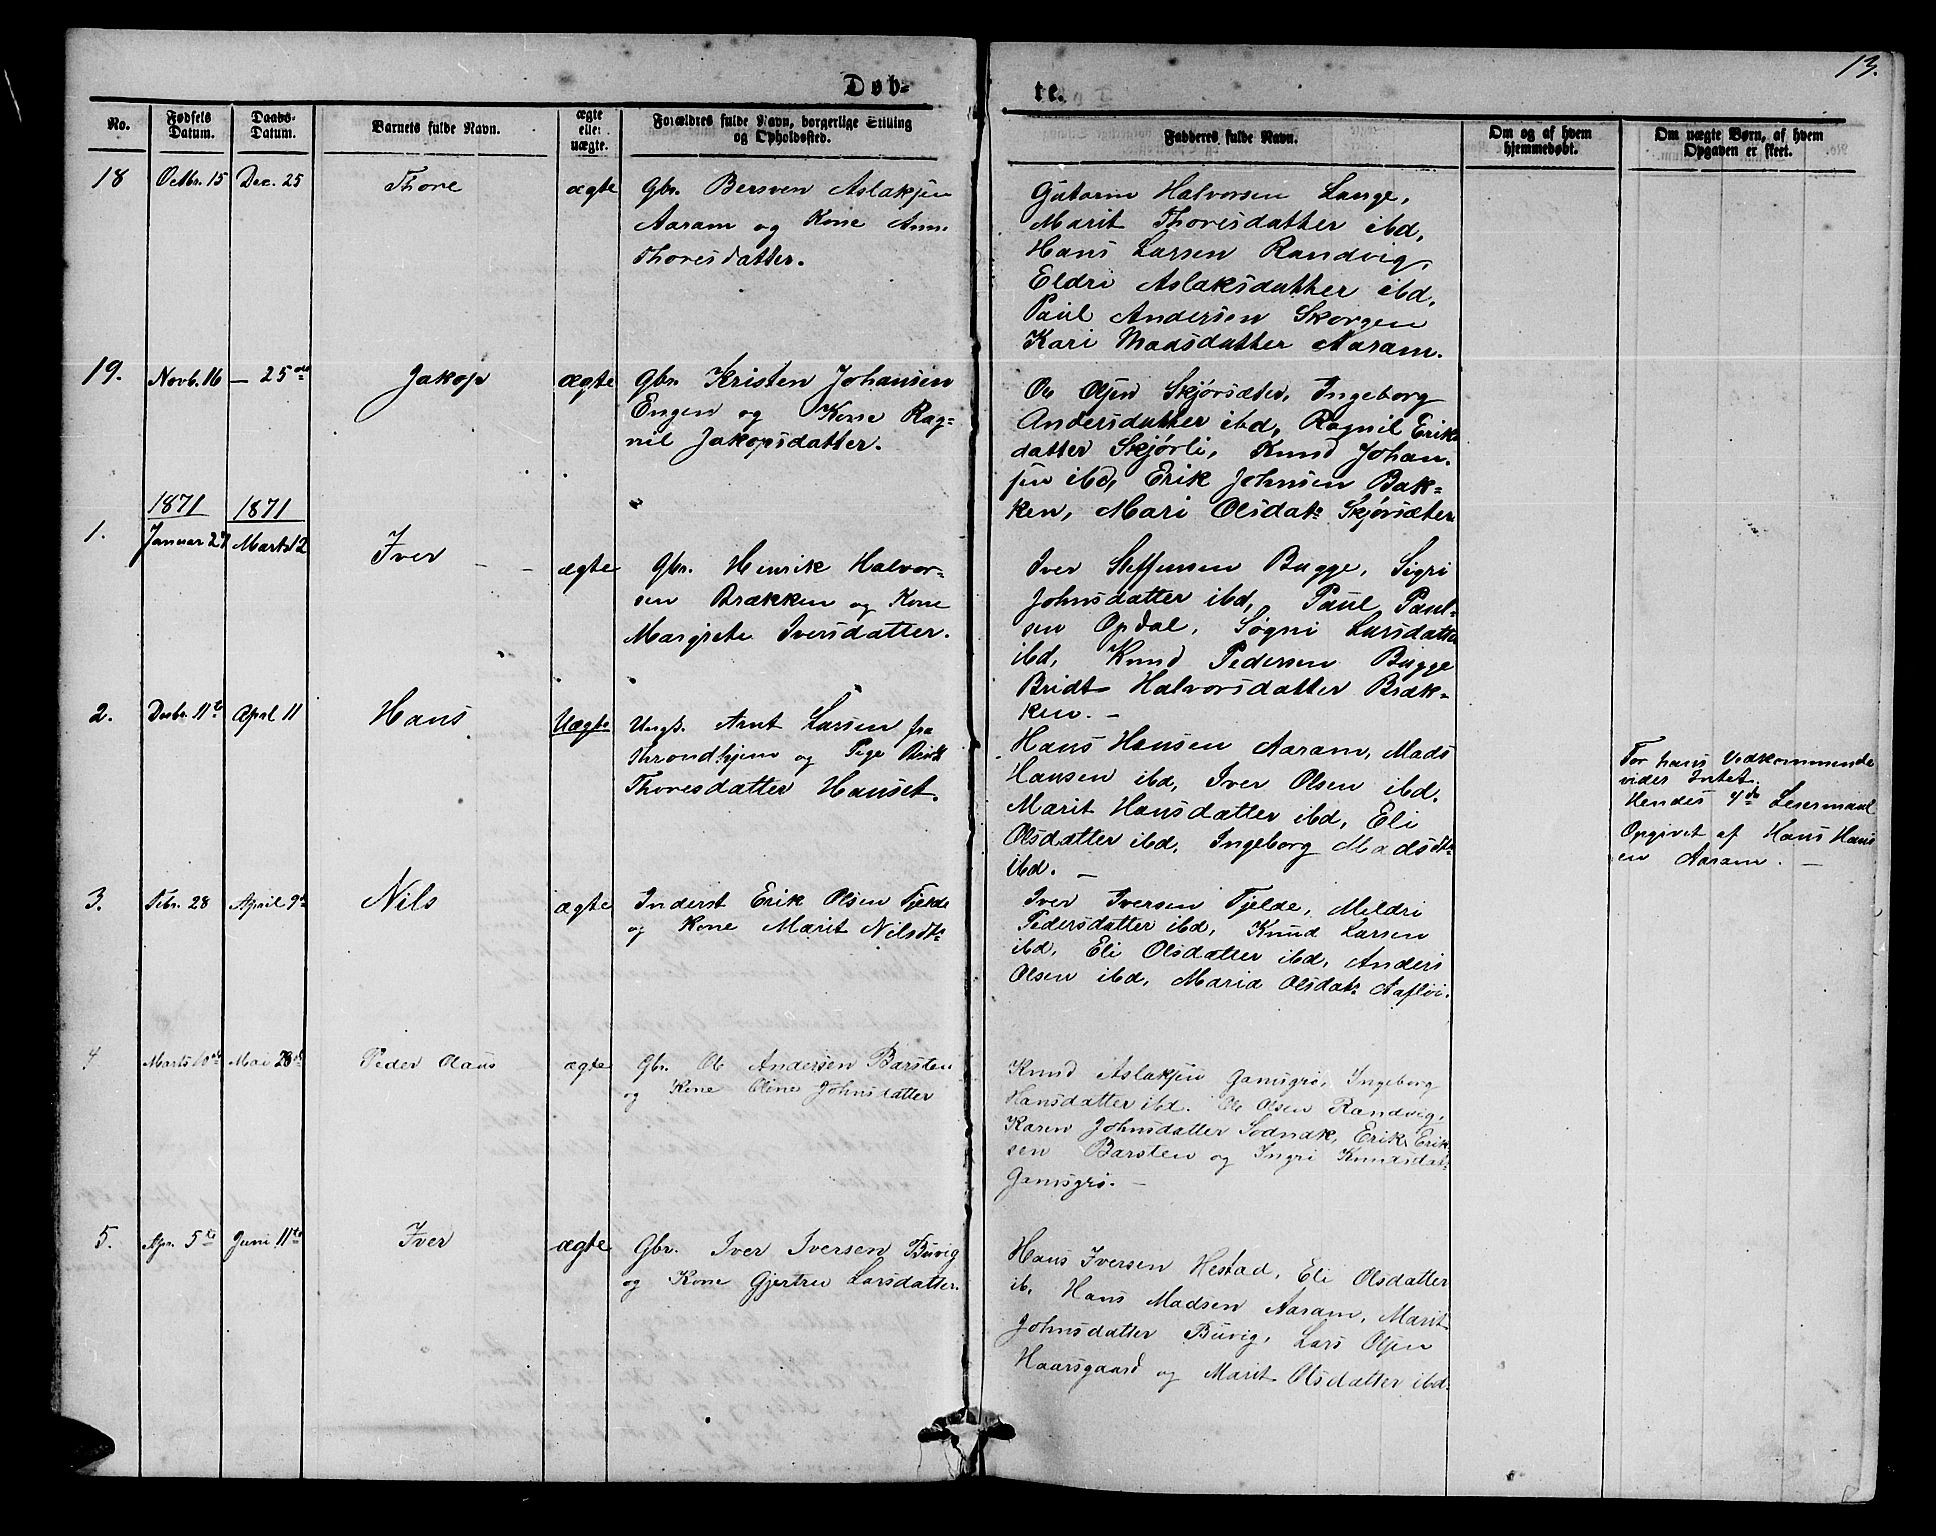 13.
Døb-
te.
No.
Fødsels
Datum.
Daabs-
Datum.
Barnets fulde Navn.
ægte
eller
uægte.
Forældres fulde Navn, borgerlige Stilling
og Opholdssted.
Fadderes fulde Navn.
Om og af hvem
hjemmedøbt.
Om uægte Børn, af hvem
Opgaven er skeet.
18 Octbr. 15 Dec. 25 Thore ægte
Gbr. Bersven Aslaksen
Aaram og Kone Ann.
Thoresdatter.
Gutorm Halvorsen Lange,
Marit Thoresdatter ibd,
Hans Larsen Randvig,
Eldri Aslaksdatter ibd,
Paul Andersen Skorgen
Kari Madsdatter Aaram.
19. Novb. 16 — 25de Jakop ægte
Gbr. Kristen Johansen
Engen og Kone Rag-
nil Jakopsdatter.
Ole Olsen Skjørsæter, Ingeborg
Andersdatter ibd, Ragnil Eriks
datter Skjørli, Knud Johan-
sen ibd, Erik Johnsen Bak-
ken, Mari Olsdatr Skjørsæter
1871 1871
1. Januar 27 Marts 12 Iver ægte
Gbr. Henrik Halvor-
sen Brækken og Kone
Margrete Iversdatter.
Iver Steffensen Bugge, Sigri
Johnsdatter ibd, Paul Paul-
sen Opdal, Søgni Larsdatter
ibd, Knud Pedersen Bugge
Bridt Halvorsdatter Bræk-
ken. —
2. Decbr. 11te April 11 Hans Uægte
Ungk. Arnt Larsen fra
Throndhjem og Pige Bridt
Thoresdatter Hanset.
Hans Hansen Aaram, Mads
Hansen ibd, Iver Olsen ibd.
Marit Hansdatter ibd, Eli
Olsdatter ibd, Ingeborg Madsdtr
ibd. —
For hans Vedkommende
vides Intet.
Hendes 4de Leiermaal
Opgivet af Hans Hans
en Aaram. —
3. Febr. 28 April 9de Nils ægte
Inderst Erik Olsen Fjelde
og Kone Marit Nilsdtr
Iver Iversen Fjelde, Meldri
Pedersdatter ibd, Knud Larsen
ibd, Eli Olsdatter ibd, Anders
Olsen ibd, Maria Olsdatr
4 Marts 10de Mai 28de Peder Olaus ægte
Gbr. Ole Andersen Barsten
og Kone Oline Johnsdatter
Knud Aslaksen Gamsgrø, Ingeborg
Hansdatter ibd. Ole Olsen Randvig,
Karen Johnsdatter Sødnak, Erik Erik
sen Barsten og Ingri Knudsdatr
Gamsgrø. —
5. Apr. 5te Juni 11te Iver ægte
Gbr. Iver Iversen Buvig
og Kone Gjertru Larsdatter.
Hans Iversen Hestad, Eli Olsdatter
ib, Hans Madsen Aaram, Marit
Johnsdatter Buvig, Lars Olsen
Haarsgaard og Marit Olsdatter ibd.